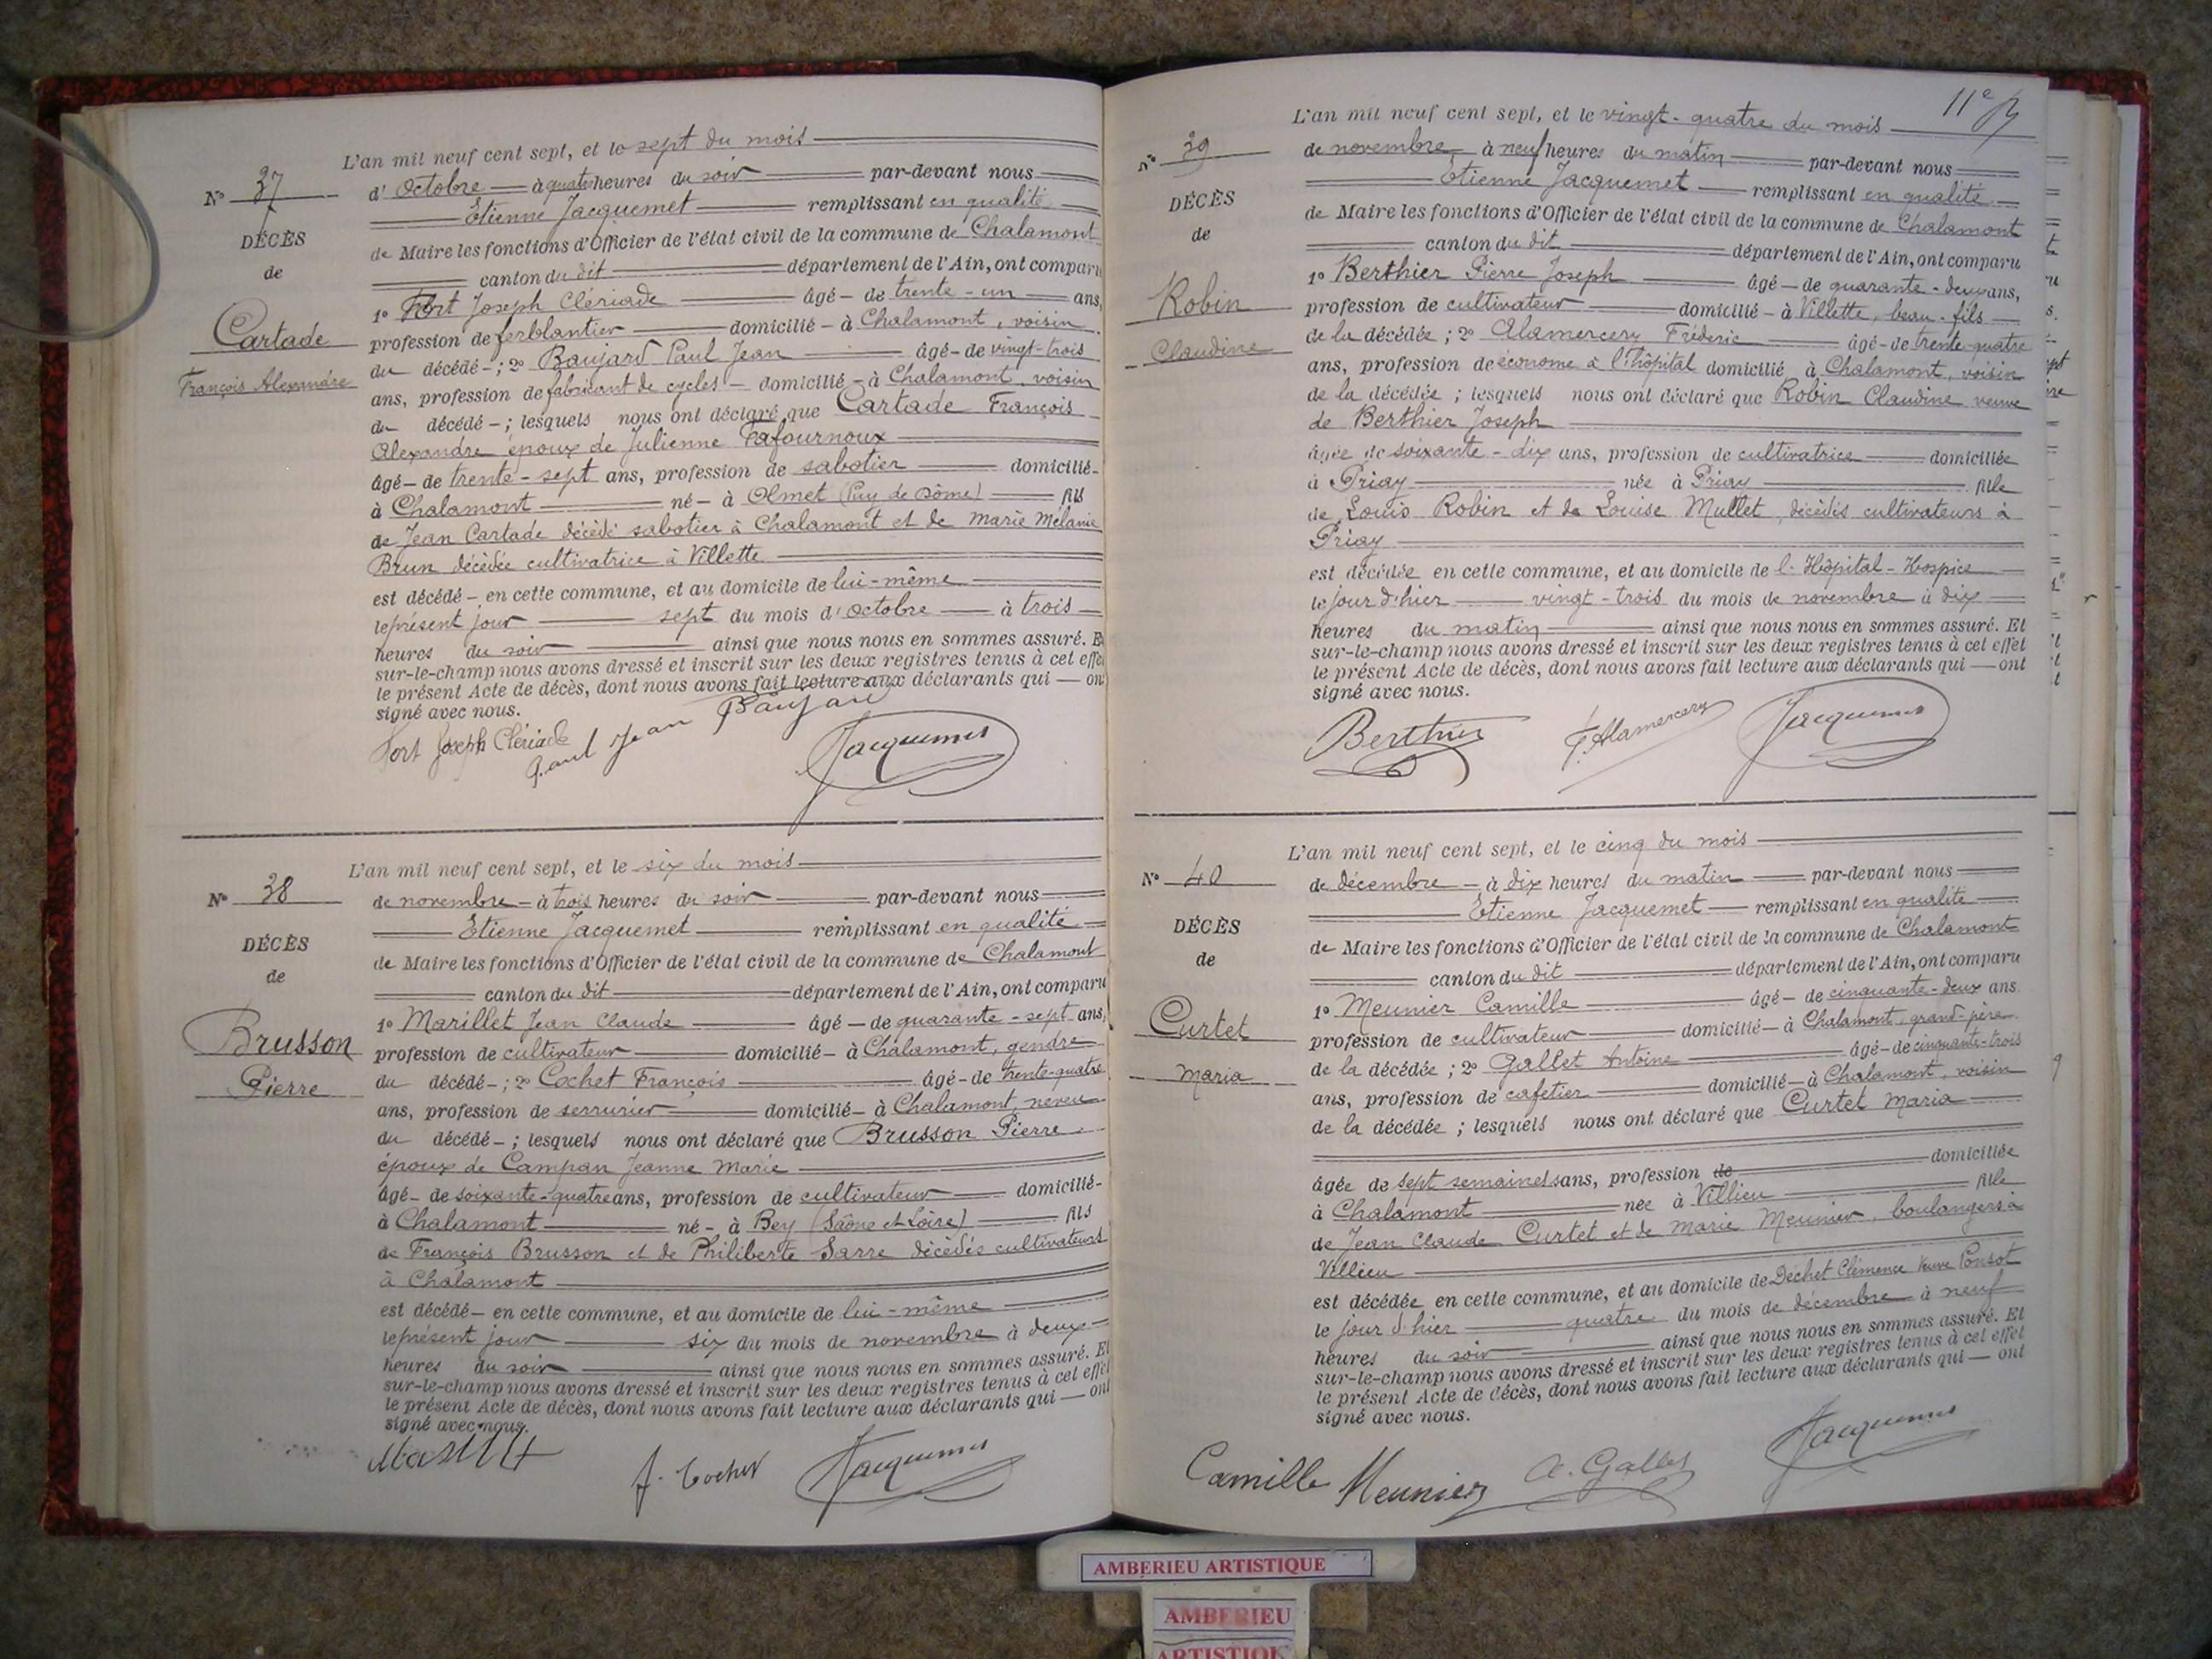 L'an mil neuf cent sept, et le sept du mois
N° 37
d'Octobre à quatre heures du soir par-devant nous
Etienne Jacquemet remplissant en qualité
DÉCÈS
de Maire les fonctions d'Officier de l'état civil de la commune de Chalamont
de
canton du dit département de l'Ain, ont comparu
1° Fort Joseph Clériade âgé de trente-un ans,
Cartade
profession de ferblantier domicilié à Chalamont, voisin
du décédé ; 2° Baujard Paul Jean âgé de vingt-trois
François Alexandre
ans, profession de fabricant de cycles domicilié à Chalamont, voisin
du décédé ; lesquels nous ont déclaré que Cartade François
Alexandre époux de Julienne Fafournoux
âgé de trente-sept ans, profession de sabotier domicilié
à Chalamont né à Olmet (Puy de Dôme) fils
de Jean Cartade décédé sabotier à Chalamont et de Marie Mélanie
Brun décédée cultivatrice à Villette
est décédé en cette commune, et au domicile de lui-même
le présent jour sept du mois d'Octobre à trois
heures du soir ainsi que nous nous en sommes assuré. Et
sur-le-champ nous avons dressé et inscrit sur les deux registres tenus à cet effet
le présent Acte de décès, dont nous avons fait lecture aux déclarants qui ont
signé avec nous.
Fort Joseph Clériade Paul Jean Baujard Jacquemet
L'an mil neuf cent sept, et le six du mois
N° 38
de novembre à trois heures du soir par-devant nous
Etienne Jacquemet remplissant en qualité
DÉCÈS
de Maire les fonctions d'Officier de l'état civil de la commune de Chalamont
de
canton du dit département de l'Ain, ont comparu
1° Marillet Jean Claude âgé de quarante-sept ans,
Brusson
profession de cultivateur domicilié à Chalamont, gendre
Pierre
du décédé ; 2° Cochet François âgé de trente-quatre
ans, profession de serrurier domicilié à Chalamont neveu
du décédé ; lesquels nous ont déclaré que Brusson Pierre
époux de Campan Jeanne Marie
âgé de soixante-quatre ans, profession de cultivateur domicilié
à Chalamont né à Bey (Saône et Loire) fils
de François Brusson et de Philiberte Sarre décédés cultivateurs
à Chalamont
est décédé en cette commune, et au domicile de lui-même
le présent jour six du mois de novembre à deux
heures du soir ainsi que nous nous en sommes assuré. Et
sur-le-champ nous avons dressé et inscrit sur les deux registres tenus à cet effet
le présent Acte de décès, dont nous avons fait lecture aux déclarants qui ont
signé avec nous.
Marillet f. Cochet Jacquemet
11e
L'an mil neuf cent sept, et le vingt-quatre du mois
N° 39
de novembre à neuf heures du matin par-devant nous
Etienne Jacquemet remplissant en qualité
DÉCÈS
de Maire les fonctions d'Officier de l'état civil de la commune de Chalamont
de
canton du dit département de l'Ain, ont comparu
1° Berthier Pierre Joseph âgé de quarante-deux ans,
Robin
profession de cultivateur domicilié à Villette, beau-fils
de la décédée ; 2° Alamercery Fréderic âgé de trente-quatre
Claudine
ans, profession de économe à l'hôpital domicilié à Chalamont, voisin
de la décédée ; lesquels nous ont déclaré que Robin Claudine veuve
de Berthier Joseph
âgée de soixante-dix ans, profession de cultivatrice domiciliée
à Priay née à Priay fille
de Louis Robin et de Louise Mullet, décédés cultivateurs à
Priay
est décédée en cette commune, et au domicile de l'Hôpital-Hospice
le jour d'hier vingt-trois du mois de novembre à dix
heures du matin ainsi que nous nous en sommes assuré. Et
sur-le-champ nous avons dressé et inscrit sur les deux registres tenus à cet effet
le présent Acte de décès, dont nous avons fait lecture aux déclarants qui ont
signé avec nous.
Berthier F. Alamercery Jacquemet
L'an mil neuf cent sept, et le cinq du mois
N° 40
de décembre à dix heures du matin par-devant nous
Etienne Jacquemet remplissant en qualité
DÉCÈS
de Maire les fonctions d'Officier de l'état civil de la commune de Chalamont
de
canton du dit département de l'Ain, ont comparu
1° Meunier Camille âgé de cinquante-deux ans
Curtet
profession de cultivateur domicilié à Chalamont, grand-père
de la décédée ; 2° Gallet Antoine âgé de cinquante-trois
Maria
ans, profession de cafetier domicilié à Chalamont, voisin
de la décédée ; lesquels nous ont déclaré que Curtet Maria
âgée de sept semaines ans, profession de domiciliée
à Chalamont née à Villieu fille
de Jean Claude Curtet et de Marie Meunier, boulangers à
Villieu
est décédée en cette commune, et au domicile de Déchet Clémence veuve Ponsot
le jour d'hier quatre du mois de décembre à neuf
heures du soir ainsi que nous nous en sommes assuré. Et
sur-le-champ nous avons dressé et inscrit sur les deux registres tenus à cet effet
le présent Acte de décès, dont nous avons fait lecture aux déclarants qui ont
signé avec nous.
Camille Meunier A. Gallet Jacquemet
AMBERIEU ARTISTIQUE
AMBERIEU
ARTISTIQUE